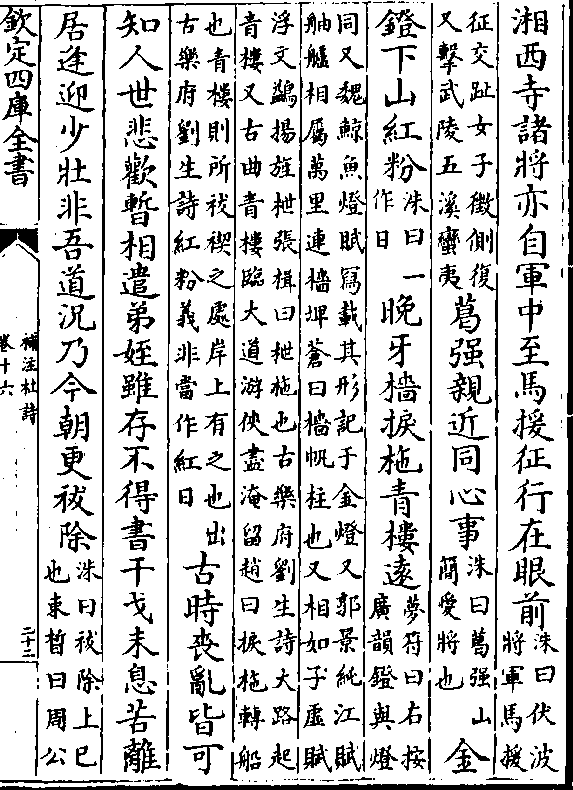 湘西寺諸將亦自軍中至馬援征行在眼前洙曰伏波將軍馬援
征交趾女子徵側復又擊武陵五溪蠻夷葛强親近同心事洙曰葛强山簡愛將也金
鐙下山紅粉洙曰一作日晚牙檣捩柂青樓遠夢符曰右按廣韻鐙與燈
同又魏鯨魚燈賦冩載其形記于金燈又郭景純江賦舳艫相屬萬里連檣埤蒼曰檣帆柱也又相如子虚賦
浮文鷁揚旌枻張楫曰枻柂也古樂府劉生詩大路起青樓又古曲青樓臨大道游俠盡淹留趙曰捩柂轉船
也青樓則所祓禊之處岸上有之也出古樂府劉生詩紅粉義非當作紅日古時喪亂皆可
知人世悲歡暫相遣弟姪雖存不得書干戈未息苦離
居逢迎少壯非吾道況乃今朝更祓除洙曰祓除上巳也束晳曰周公
欽定四庫全書
補注杜詩
卷十六
二十二